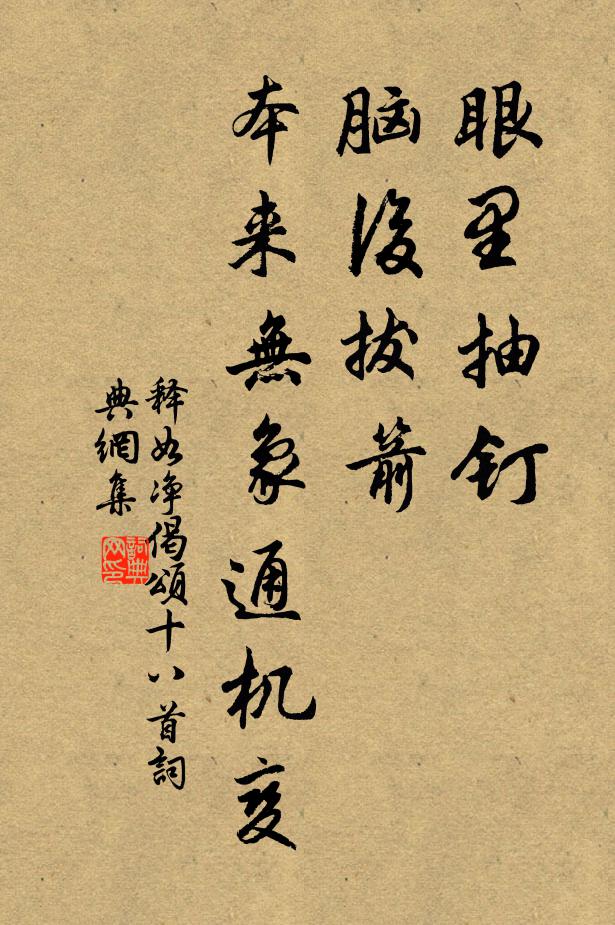 眼里抽钉
脑後拔箭
本来無象通机变
释如净偈頌十八首詞
典網集
詞典網印